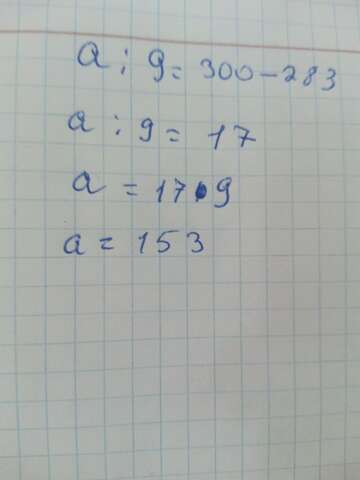 a : 9 = 300 - 283
a : 9 = 17
a = 17 • 9
a = 153